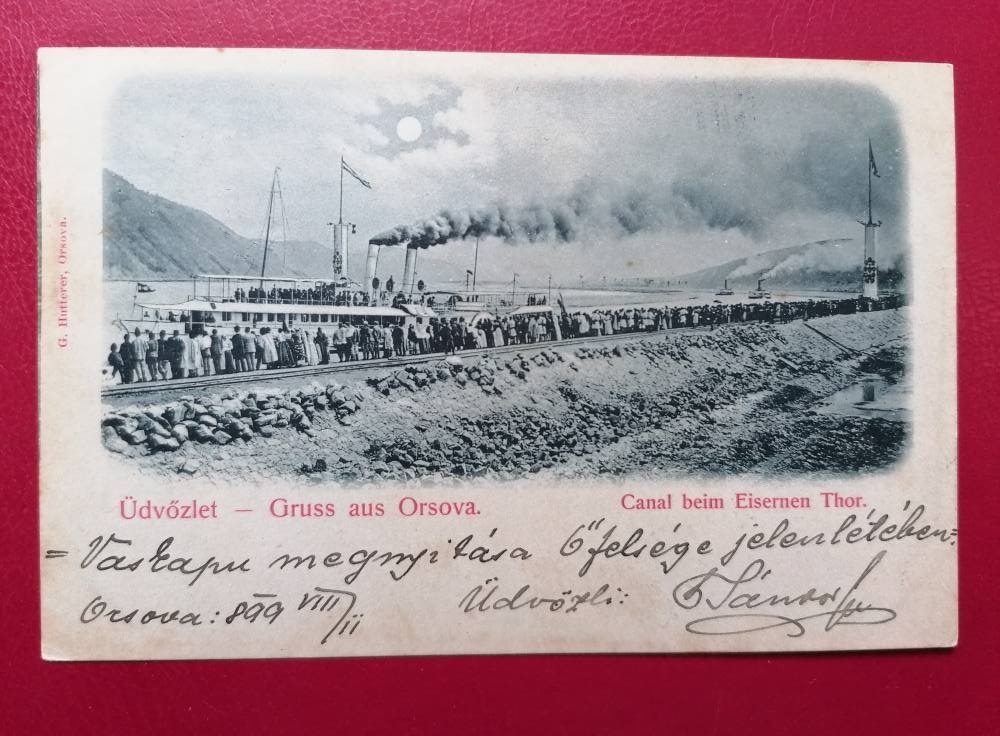 G. Hutterer, Orsova.
Üdvőzlet – Gruss aus Orsova.
Canal beim Eisernen Thor.
= Vaskapu megnyitása Ő felsége jelenlétében =
Orsova: 899 VIII/II
Üdvőzli: Sándor